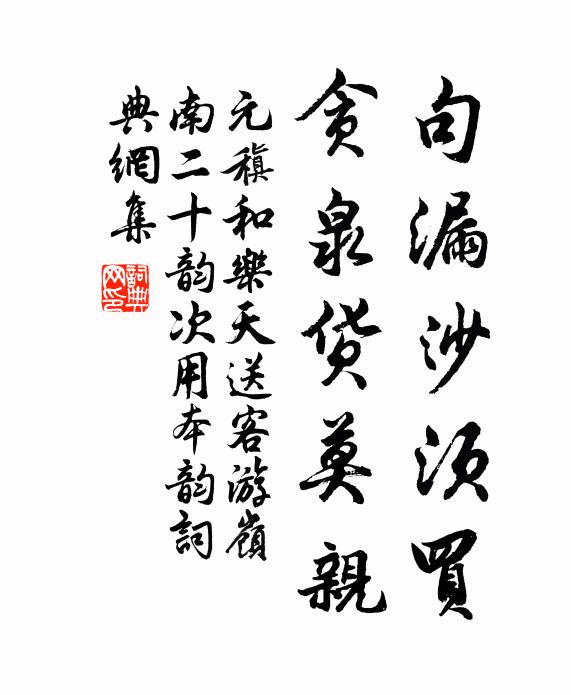 句漏沙須買
貪泉貨莫親
元稹和樂天送客游嶺
南二十韵次用本韵詞
典網集
詞典
网印